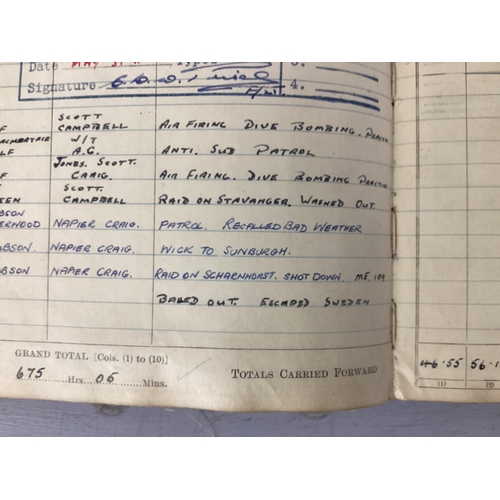 Date MAY 31
Signature
F/LT. 4.
SCOTT
CAMPBELL AIR FIRING DIVE BOMBING. PRACTICE
W/T
A.G. ANTI. SUB PATROL
JONES. SCOTT.
CRAIG. AIR FIRING. DIVE BOMBING PRACTICE
SCOTT.
CAMPBELL RAID ON STAVANGER. WASHED OUT.
ERWOOD NAPIER CRAIG. PATROL. RECALLED BAD WEATHER
OBSON NAPIER CRAIG. WICK TO SUNBURGH.
OBSON NAPER CRAIG. RAID ON SCHARNHORST. SHOT DOWN. ME. 109
BALED OUT. ESCAPED SWEDEN
GRAND TOTAL [Cols. (1) to (10)]
675 Hrs. 05 Mins. TOTALS CARRIED FORWARD
46.55 56.1
(1) (2)